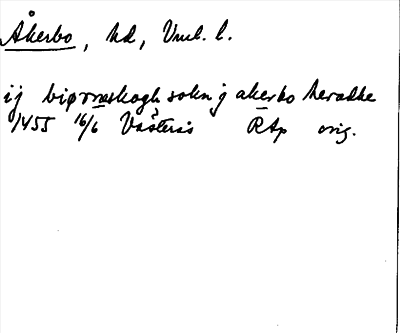 Åkerbo, hd, Vml. l.
ij biørnæskogh sokn j akerbo heradhe
1455 16/6 Västerås RAp orig.